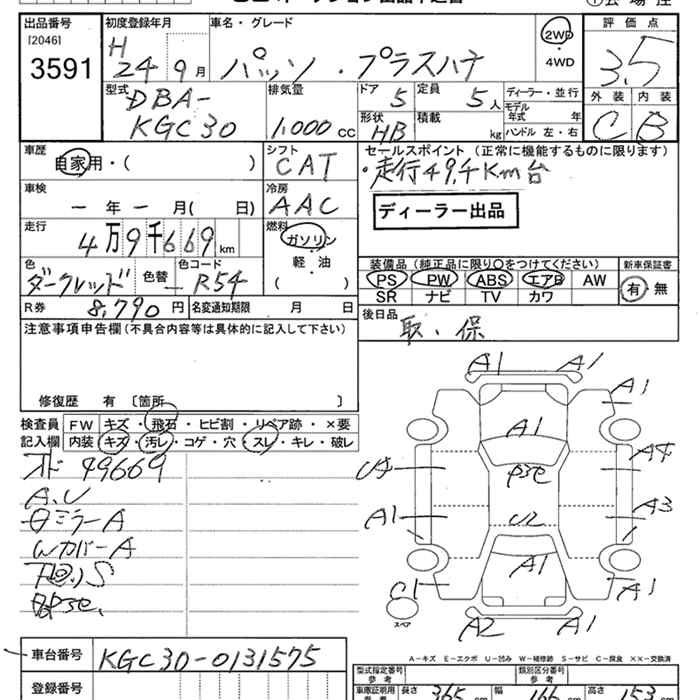 出品番号 [2046] 3591
初度登録年月 H 24 9月
車名・グレード パッソ・プラスハナ
2WD・4WD
評価点 3.5
外装 C 内装 B
型式 DBA-KGC30
排気量 1,000 cc
ドア 5
定員 5人
形状 HB
積載 kg
ディーラー・並行
モデル年式 年
ハンドル 左・右
車歴 自家用・( )
シフト CAT
セールスポイント (正常に機能するものに限ります)
・走行49千Km台
車検 ー年ー月( 日)
冷房 AAC
ディーラー出品
走行 4万9千669km
燃料 ガソリン・軽・油 ( )
装備品(純正品に限り〇をつけてください)
PS PW ABS エアB AW
SR ナビ TV カワ
新車保証書 有 無
色 ダークレッド 色替 ー 色コード R54
R券 8,790円
名変通知期限 月 日
後日品 取.保
注意事項申告欄(不具合内容等は具体的に記入して下さい)
修復歴 有 〔箇所 〕
検査員記入欄
FW キズ・飛石・ヒビ割・リペア跡・×要
内装 キズ・汚レ・コゲ・穴・スレ・キレ・破レ
49669
A.U
ミラーA
WカバーA
A1 A1
A1
A1
U4
A4
A1
A3
U2
A1
C1
A1
スペア
A2 A1
A-キズ E-エクボ U-凹み W-補修跡 S-サビ C-腐食 XX-交換済
車台番号 KGC30-0131575
登録番号
型式指定番号 参考
類別区分番号 参考
車庫証明用 参考 長さ 365 cm 幅 166 cm 高さ 153 cm